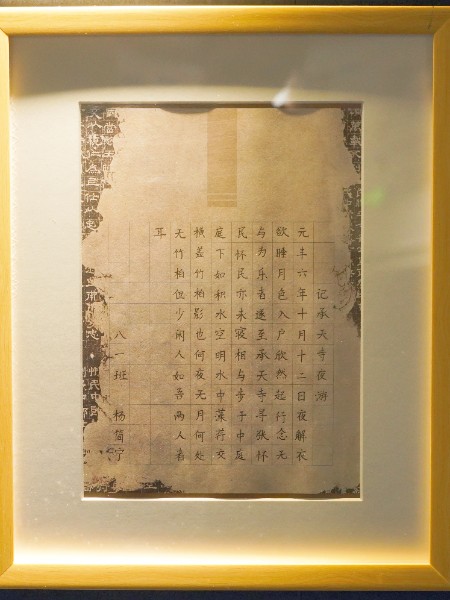 记承天寺夜游
元丰六年十月十二日夜解衣
欲睡月色入户欣然起行念无
与为乐者遂至承天寺寻张怀
民怀民亦未寝相与步于中庭
庭下如积水空明水中藻荇交
横盖竹柏影也何夜无月何处
无竹柏但少闲人如吾两人者
耳
八一班 杨简宁